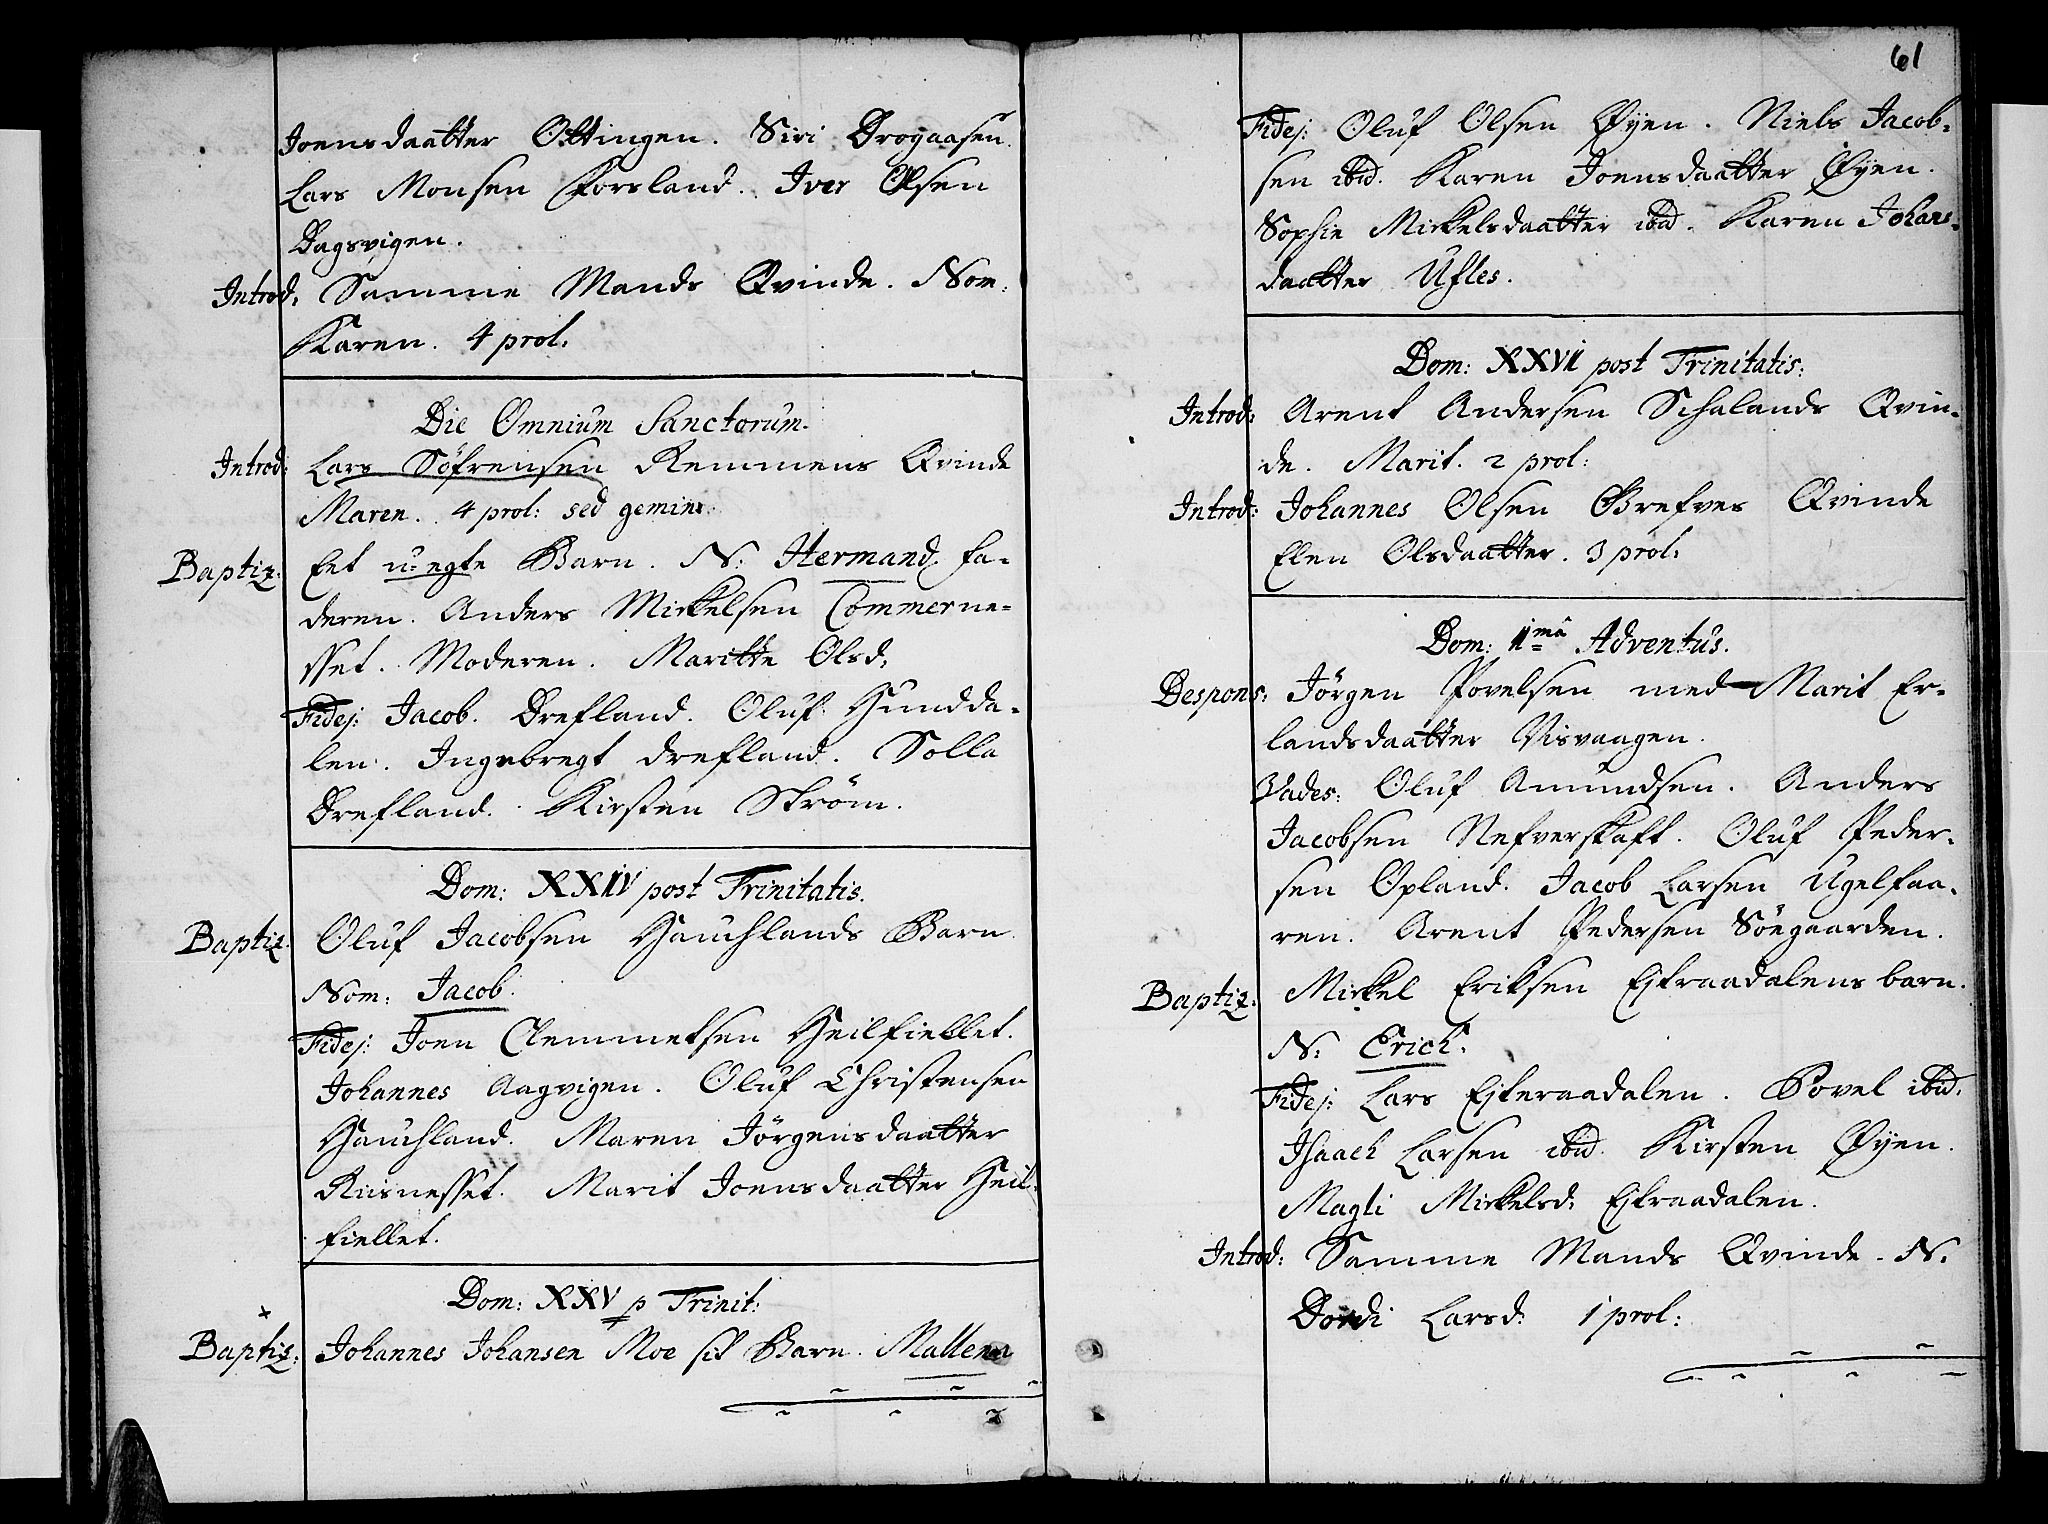 Joensdaatter Ottingen. Siri Drogaasen.
Lars Monsen Forsland. Iver Olsen
Dagsvigen.
Introd: Samme Mands Qvinde. Nom:
Karen. 4 prol:
Die Omnium Sanctorum.
Introd: Lars Söfrensen Remmens Qvinde
Maren. 4 prol: sed gemini.
Baptiz: Eet u-egte Barn. N: Hermand. Fa-
deren. Anders Mickelsen Tommerne-
sset. Moderen. Maritte Olsd.
Fidej: Jacob. Drefland. Oluf Hundda-
len. Ingebregt Drefland. Solla
Drefland. Kirsten Ström.
Dom: XXIV post Trinitatis.
Baptiz: Oluf Jacobsen Hauchlands Barn.
Nom: Jacob.
Fidej: Joen Clemmetsen Heilfiellet.
Johannes Aagvigen. Oluf Christensen
Hauchland. Maren Jörgensdaatter
Riisnesset. Marit Joensdaatter Heil-
fiellet.
Dom: XXV p Trinit:
Baptiz: Johannes Johansen Moe sit Barn. Mallena
61
Fidej: Oluf Olsen Öyen. Niels Jacob-
sen ibid. Karen Joensdaatter Öyen.
Sophie Mickelsdaatter ibid. Karen Johans-
daatter Ufles.
Dom: XXVI post Trinitatis:
Introd: Arent Andersen Schalands Qvin-
de. Marit. 2 prol:
Introd: Johannes Olsen Grefves Qvinde
Elen Olsdaatter. 3 prol:
Dom: 1ma Adventus.
Despons: Jörgen Povelsen med Marit Er-
landsdaatter Visvaagen.
Vades: Oluf Amundsen. Anders
Jacobsen Nefverskaft. Oluf Peder-
sen Opland. Jacob Larsen Ugelfaa-
ren. Arent Pedersen Söegaarden.
Baptiz: Mickel Eriksen Ejteraadalens barn.
N: Erich.
Fidej: Lars Ejteraadalen. Povel ibid.
Isaach Larsen ibid. Kirsten Öyen.
Magli Mickelsd: Ejteraadalen.
Introd: Samme Mands Qvinde. N:
Dordi Larsd: 1 prol: